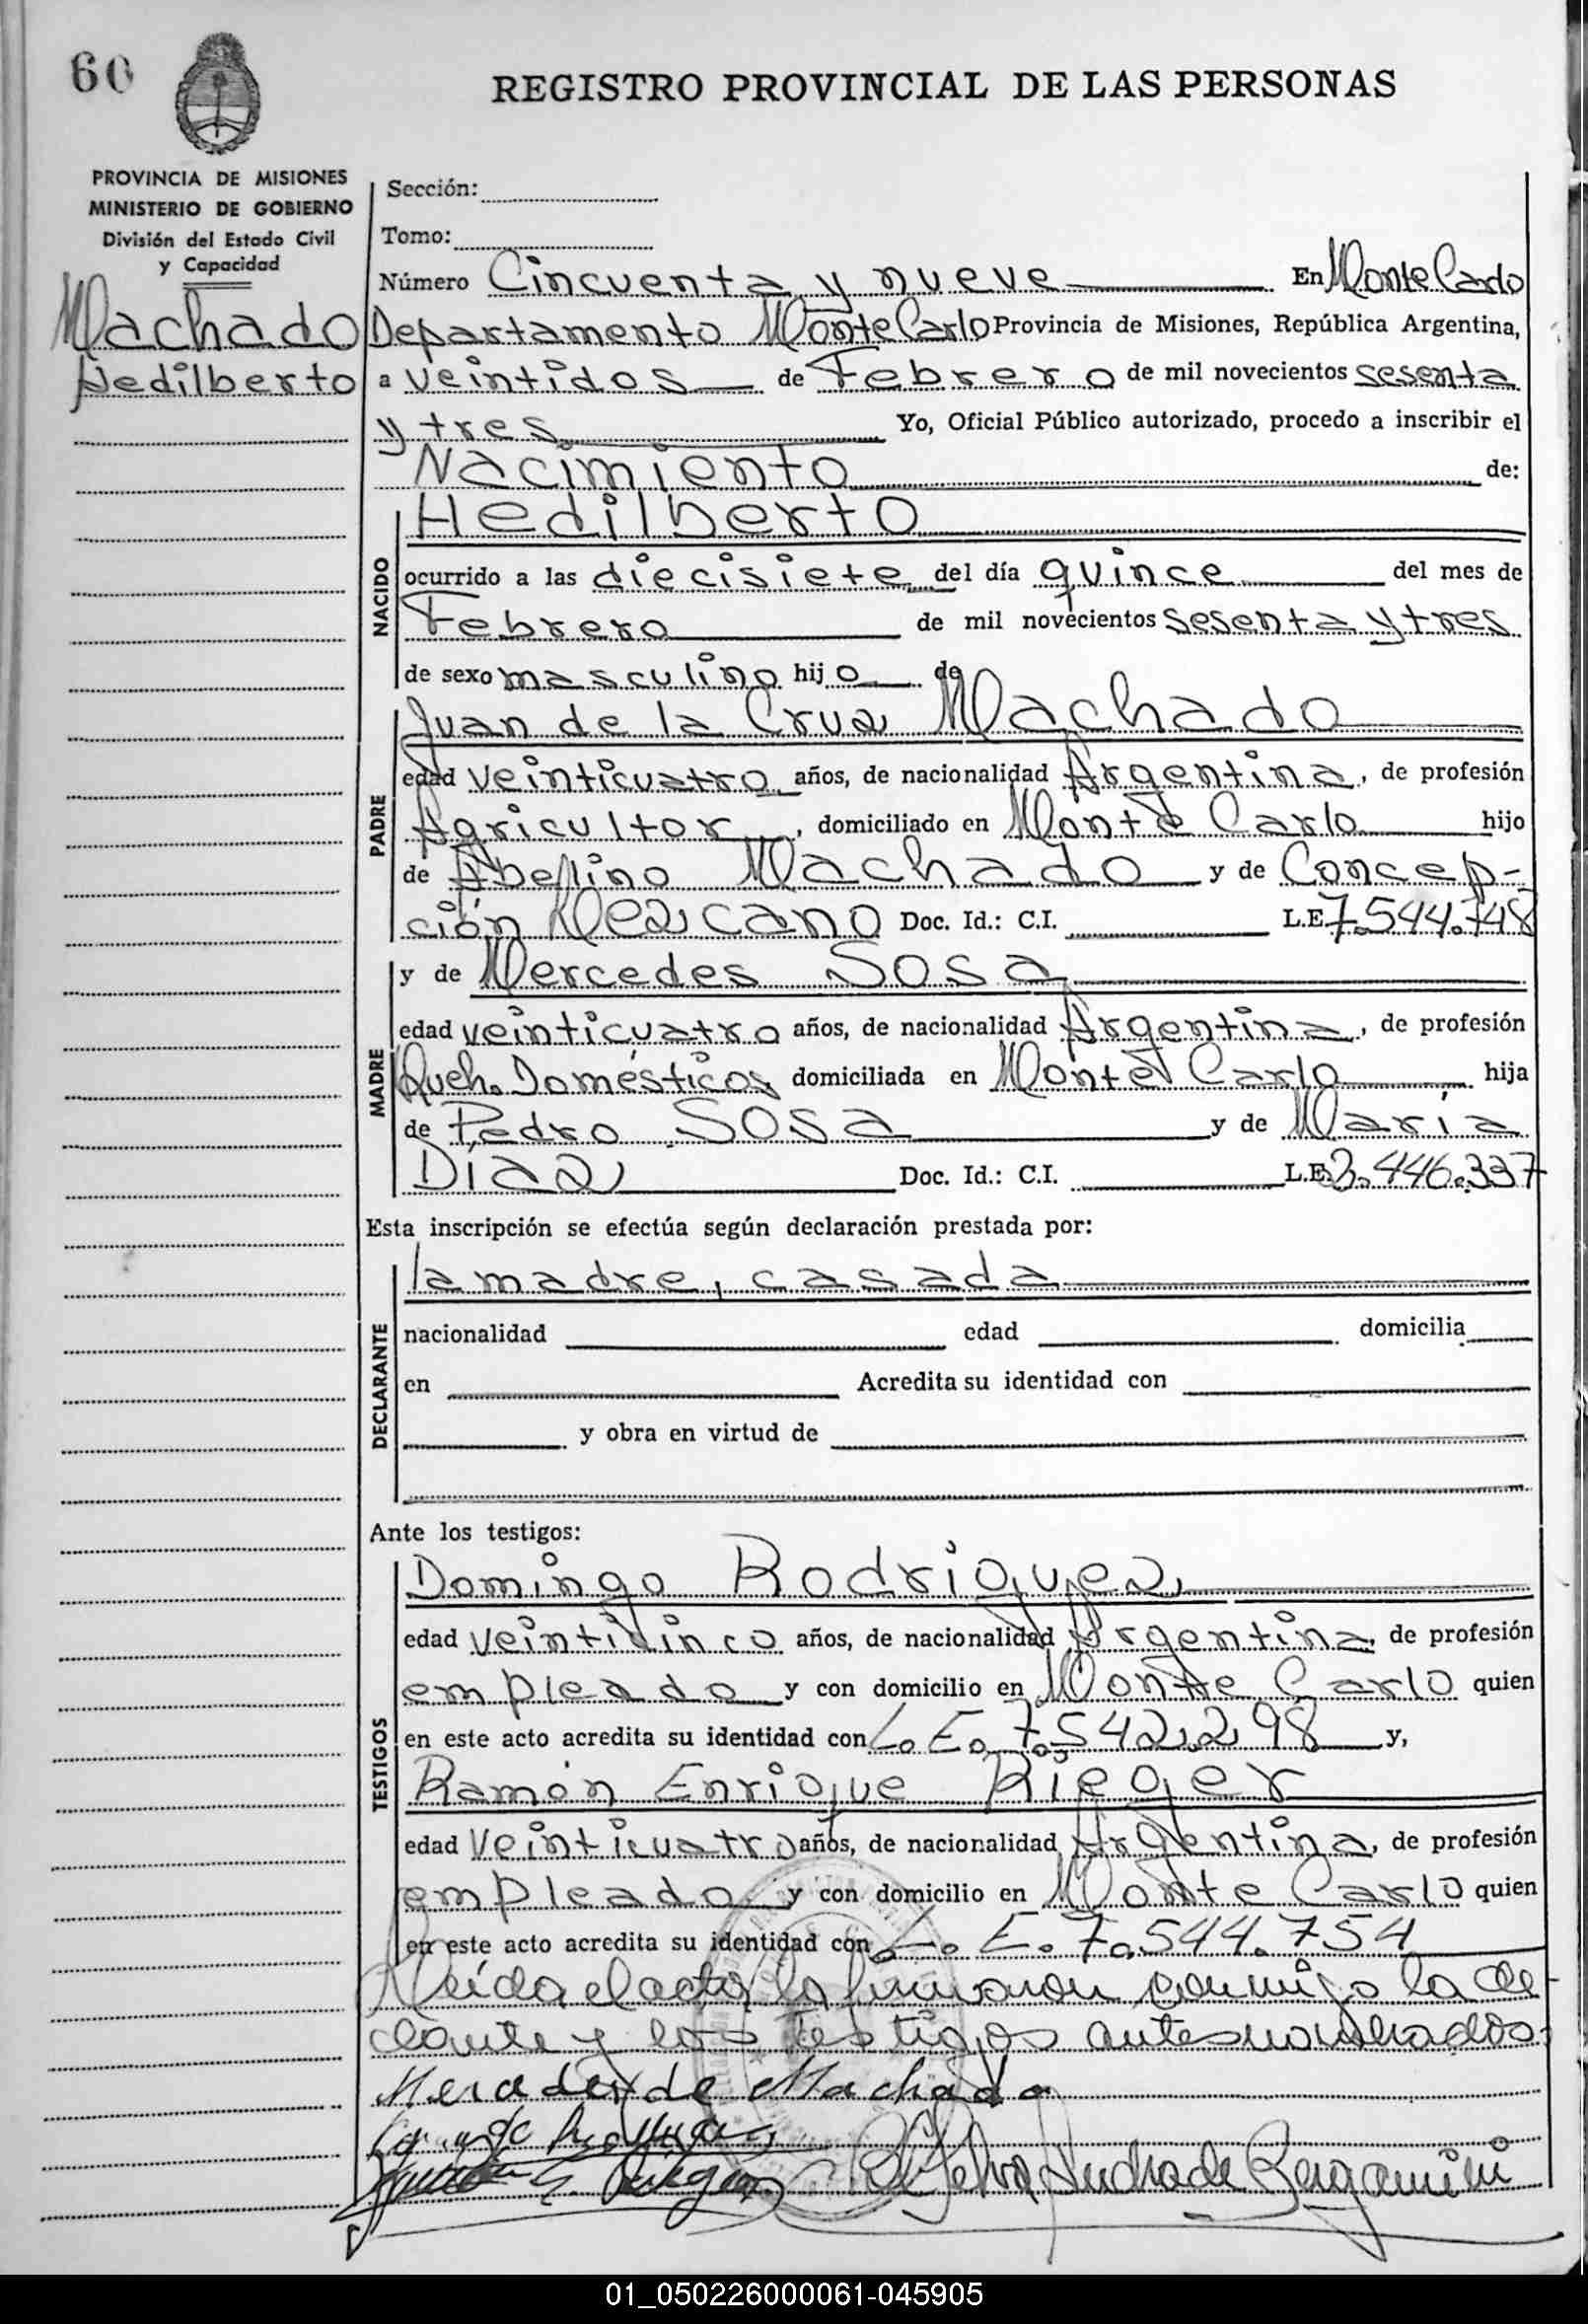 60
REGISTRO PROVINCIAL DE LAS PERSONAS
PROVINCIA DE MISIONES
MINISTERIO DE GOBIERNO
División del Estado Civil
y Capacidad
Machado
Hedilberto
Sección:
Tomo:
Número Cincuenta y nueve En Monte Carlo
Departamento Monte Carlo Provincia de Misiones, República Argentina,
a veintidos de Febrero de mil novecientos sesenta
y tres Yo, Oficial Público autorizado, procedo a inscribir el
Nacimiento de:
NACIDO
Hedilberto
ocurrido a las diecisiete del día quince del mes de
Febrero de mil novecientos sesenta y tres
de sexo masculino hijo de
PADRE
Juan de la Cruz Machado
edad veinticuatro años, de nacionalidad Argentina, de profesión
Agricultor, domiciliado en Monte Carlo hijo
de Abelino Machado y de Concep-
ción Doc. Id.: C.I. L.E. 7.544.748
MADRE
y de Mercedes Sosa
edad veinticuatro años, de nacionalidad Argentina, de profesión
Queh. Domésticos domiciliada en Monte Carlo hija
de Pedro Sosa y de María
Díaz Doc. Id.: C.I. L.E. 3.446.337
Esta inscripción se efectúa según declaración prestada por:
DECLARANTE
la madre, casada
nacionalidad edad domicilia
en Acredita su identidad con
y obra en virtud de
Ante los testigos:
TESTIGOS
Domingo Rodriguez
edad veinticinco años, de nacionalidad Argentina, de profesión
empleado y con domicilio en Monte Carlo quien
en este acto acredita su identidad con L. E. 7.542.298 y,
Ramón Enrique Rieger
edad veinticuatro años, de nacionalidad Argentina, de profesión
empleado y con domicilio en Monte Carlo quien
en este acto acredita su identidad con L. E. 7.544.754
Leída el acta la firmaron conmigo la de-
clante y los testigos antesnombrados.
de Machado
Andrade Bergamini
01_050226000061-045905